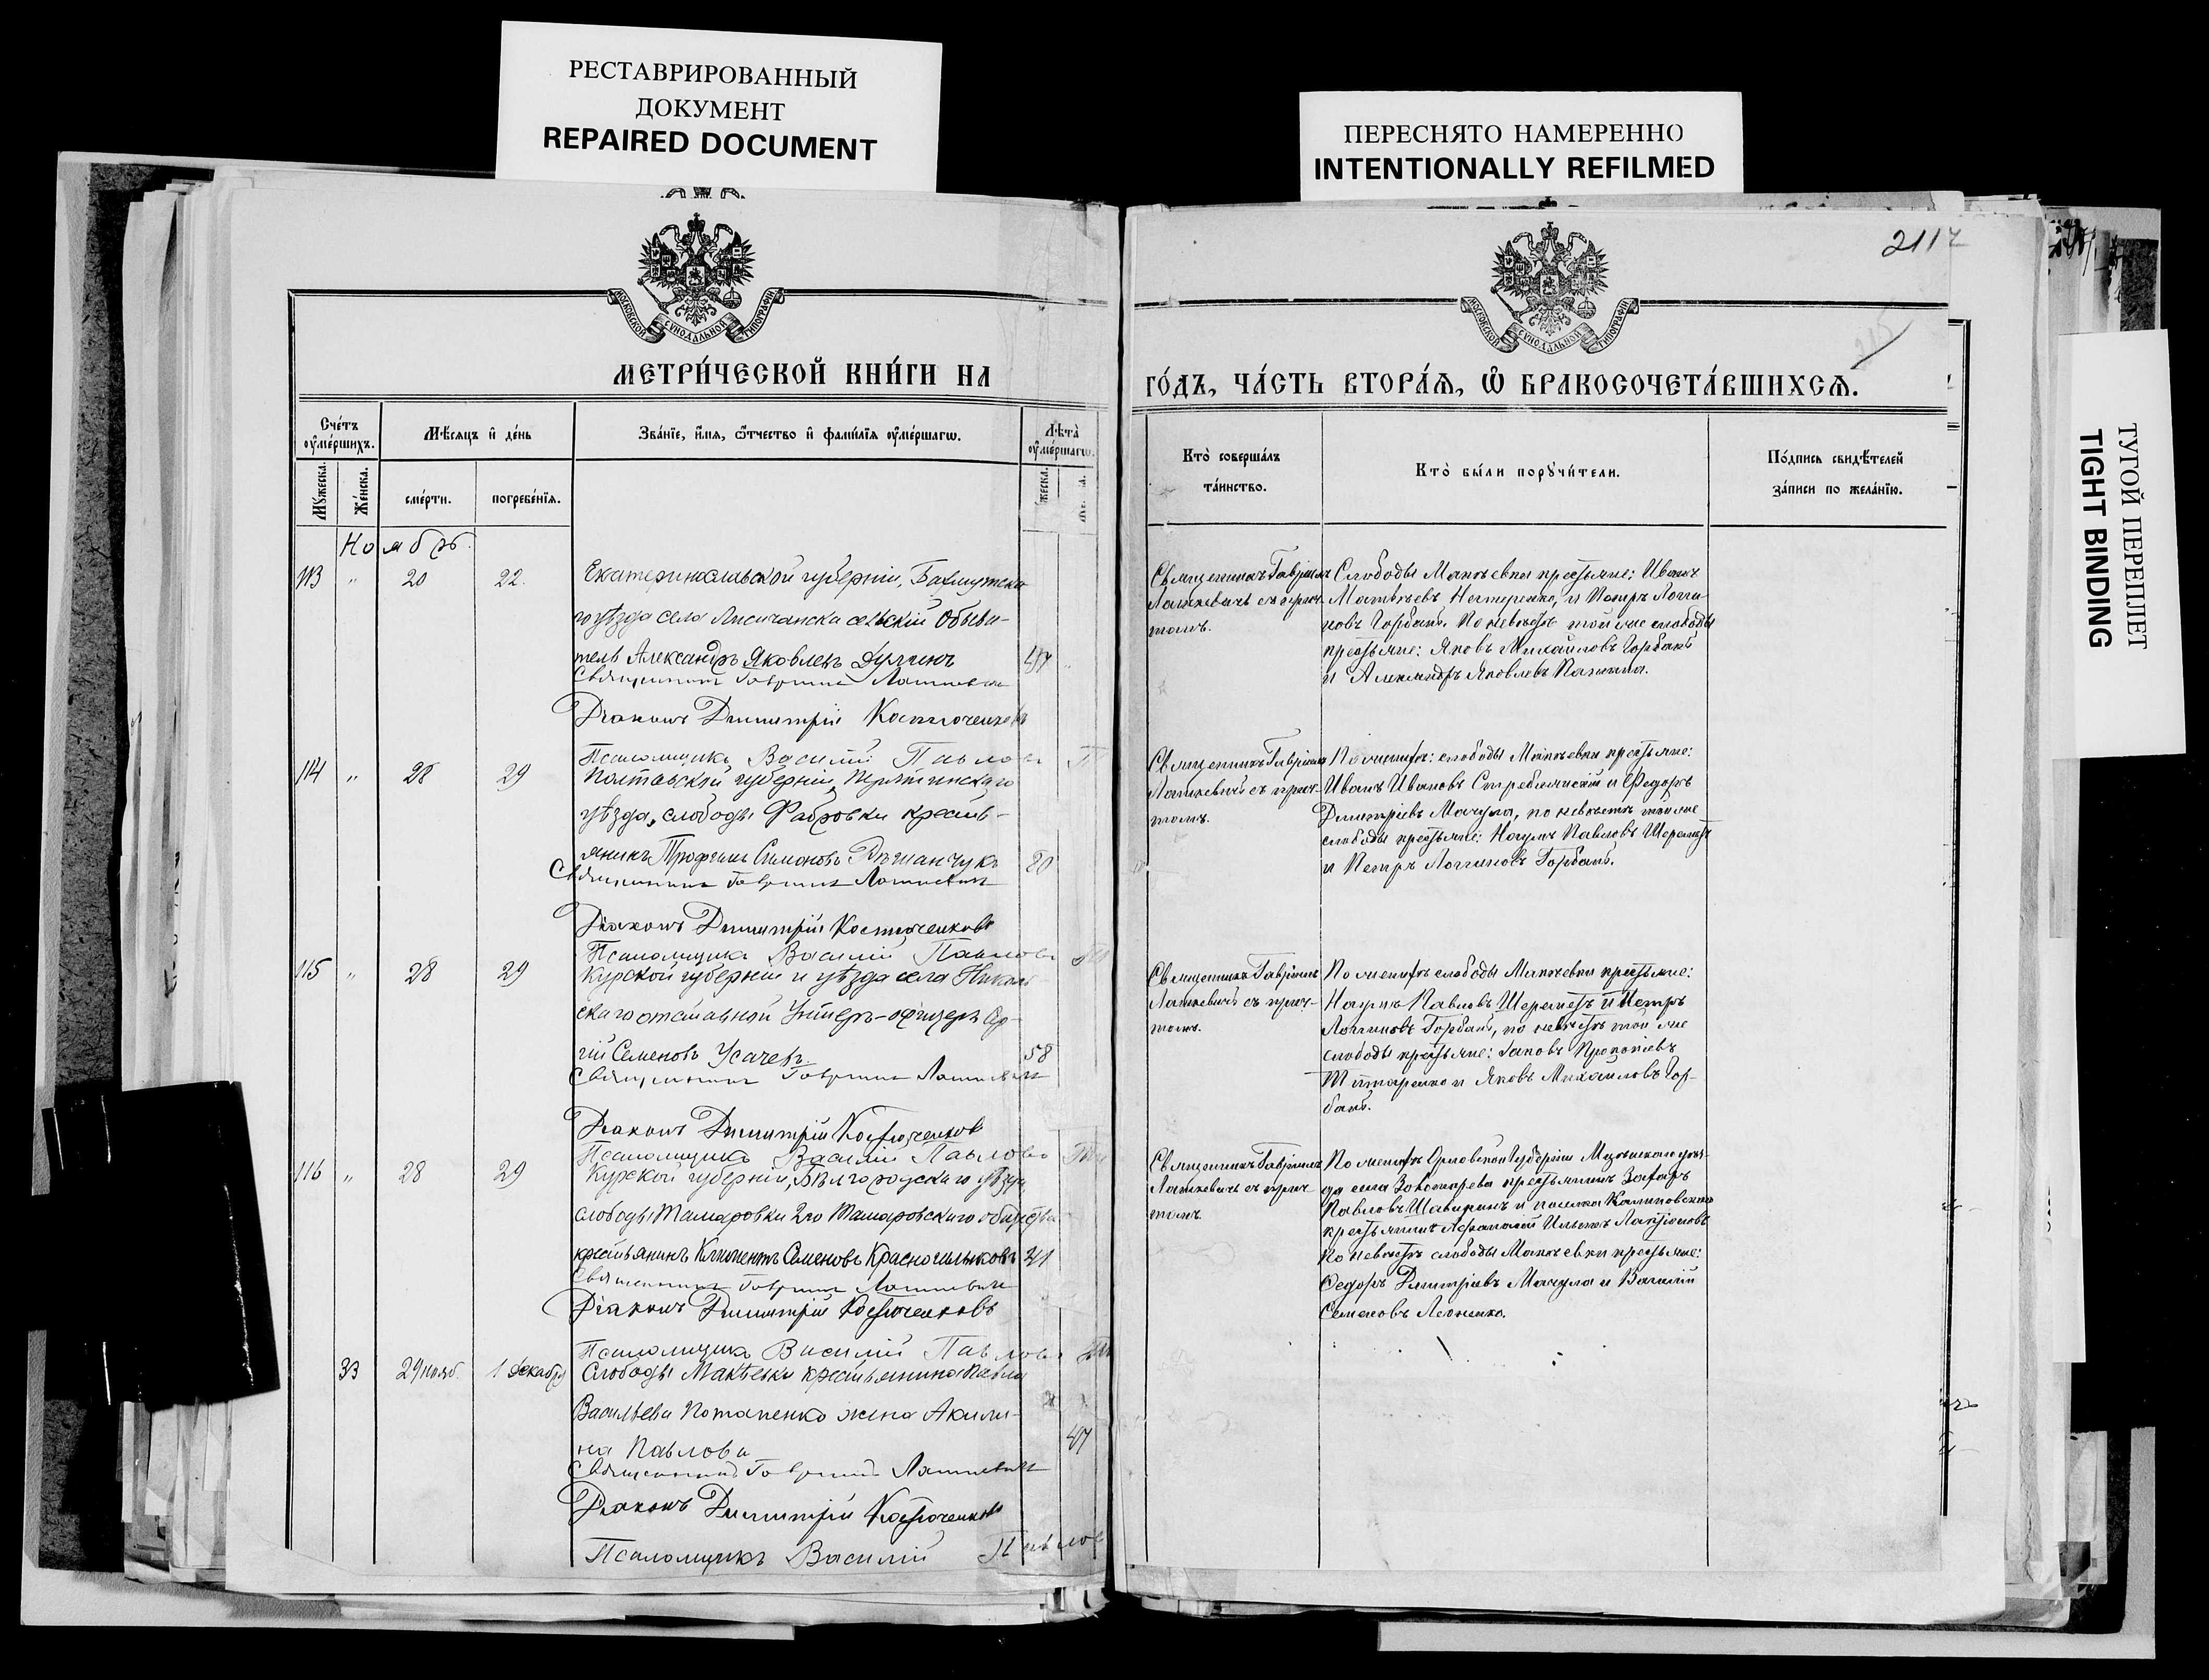 РЕСТАВРИРОВАННЫЙ
ДОКУМЕНТ
REPAIRED DOCUMENT
ПЕРЕСНЯТО НАМЕРЕННО
INTENTIONALLY REFILMED
ТУГОЙ ПЕРЕПЛЕТ
TIGHT BINDING
МОСКОВСКОЙ СѴНОДАЛЬНОЙ ТИПОГРАФІИ
МЕТРИ́ЧЕСКОЙ КНИ́ГИ НА
Сче́тъ оуме́ршихъ.
Мѣ́сяцъ и де́нь
Зва́нїе, и́мя, ѻ́тчество и фами́лїя оуме́ршагѡ.
Лѣта̀ оуме́ршагѡ.
Мꙋ́жеска.
Же́нска.
сме́рти.
погребе́нїя.
Ноябрь.
113 " 20 22.
Екатеринославской губерніи, Бахмутска-
го уѣзда села Лисичанска сельскій Обыва-
тель Александръ Яковлевъ Дулинъ 47
Священникъ Гавриилъ Латкевичъ
Діаконъ Димитрій Костюченковъ
Псаломщикъ Василій Павловъ
114 " 28 29
Полтавской губерніи, Пирятинскаго
уѣзда, слободы крестья-
янинъ Трофимъ Симоновъ 80
Священникъ Гавриилъ Латкевичъ
Діаконъ Димитрій Костюченковъ
Псаломщикъ Василій Павловъ
115 " 28 29
Курской губерніи и уѣзда села Николь-
скаго отставной Унтеръ-офицеръ
гій Семеновъ Усачевъ. 58
Священникъ Гавриилъ Латкевичъ
Діаконъ Димитрій Костюченковъ
Псаломщикъ Василій Павловъ
116 " 28 29
Курской губерніи, Бѣлгородскаго уѣзда,
слободы Тамаровки 2го Тамаровскаго общества
крестьянинъ Климентъ Семеновъ Красночильковъ 21
Священникъ Гавриилъ Латкевичъ
Діаконъ Димитрій Костюченковъ
Псаломщикъ Василій Павловъ
33 29 нояб. 1 декабр
Слободы Макѣевки крестьянина Павла
Васильева Потапенко жена Акили-
на Павлова 47
Священникъ Гавриилъ Латкевичъ
Діаконъ Димитрій Костюченковъ
Псаломщикъ Василій Павлов
2117
МОСКОВСКОЙ СѴНОДАЛЬНОЙ ТИПОГРАФІИ
ГО́ДЪ, ЧА́СТЬ ВТОРА́Я, Ѡ҆ БРАКОСОЧЕТА́ВШИХСЯ.
Кто̀ соверша́лъ та́инство.
Кто̀ бы́ли порꙋчи́тели.
По́дпись свидѣ́телей за́писи по жела́нїю.
Священникъ Гавриилъ
Латкевичъ съ прич-
томъ.
Слободы Макѣевки крестьяне: Иванъ
Матвѣевъ Нестеренко, и Петръ Логги-
новъ Горбань. По невѣстѣ той же слободы
крестьяне: Яковъ Михайловъ Горбань
и Александръ Яковлевъ
Священникъ Гавриилъ
Латкевичъ съ прич-
томъ.
По женихѣ: слободы Макѣевки крестьяне:
Иванъ Ивановъ Стреблянскій и Федоръ
Димитріевъ Мачула, по невѣстѣ той же
слободы крестьяне: Наумъ Павловъ Шереметъ
и Петръ Логгиновъ Горбань.
Священникъ Гавриилъ
Латкевичъ съ прич-
томъ.
По женихѣ слободы Макѣевки крестьяне:
Наумъ Павловъ Шереметъ и Петръ
Логгиновъ Горбань, по невѣстѣ той же
слободы крестьяне: Іаковъ Прокопіевъ
Титаренко и Яковъ Михаиловъ Гор-
бань.
Священникъ Гавриилъ
Латкевичъ съ прич-
томъ.
По женихѣ Орловской губерніи уѣз-
да села Золотарева крестьянинъ Захаръ
Павловъ и поселка Калиновскаго
крестьянинъ Афанасій Ильинъ
По невѣстѣ слободы Макѣевки крестьяне:
Федоръ Димитріевъ Мачула и Василій
Семеновъ Леоненко.